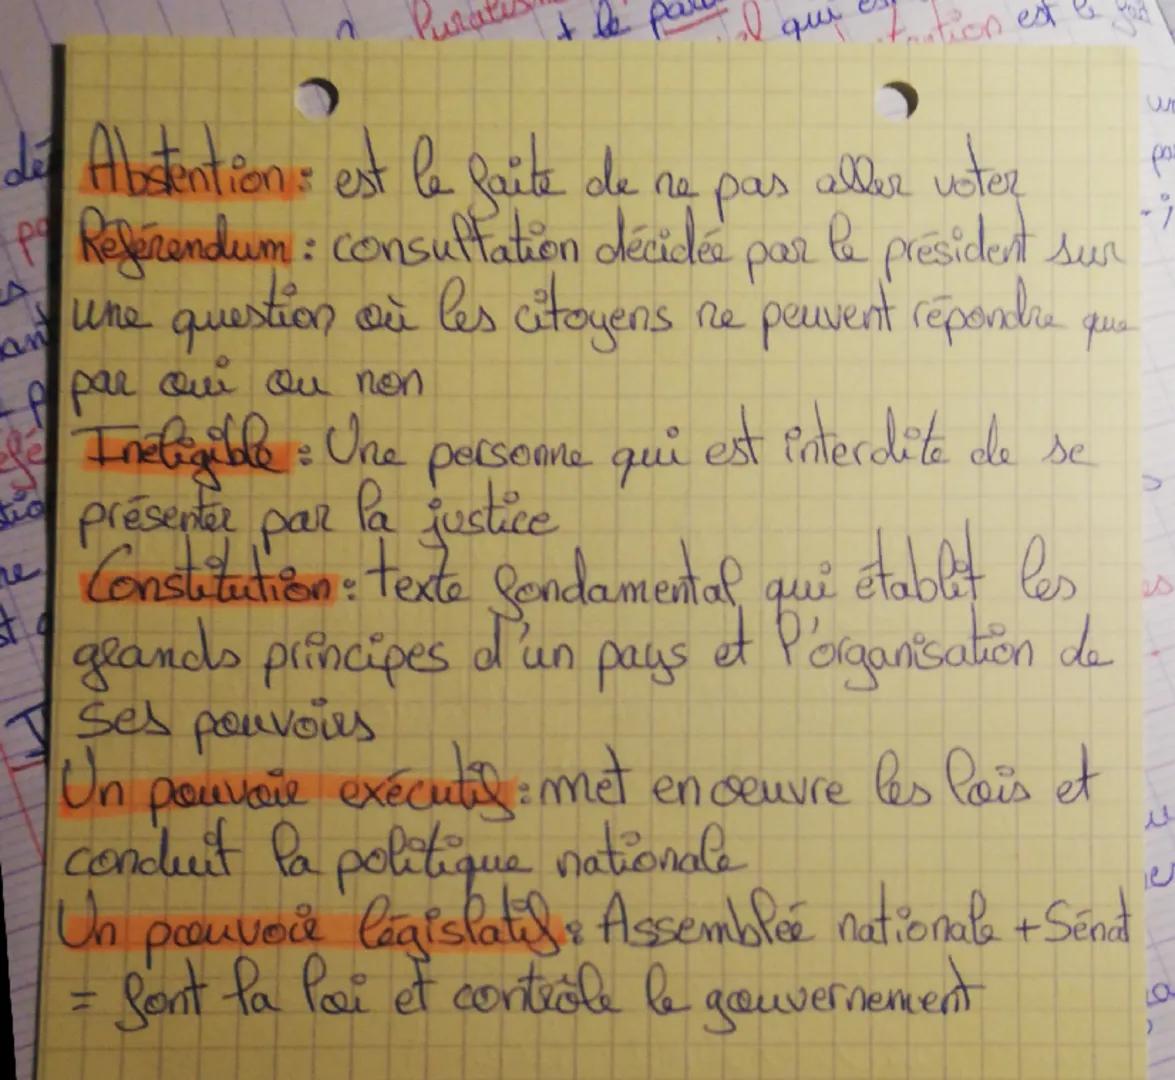 Abstention : est le faite de ne pas aller voter
Référendum : consultation décidée par le président sur
une question où les citoyens ne peuvent répondre que
par oui ou non
Inéligible : Une personne qui est interdite de se
présenter par la justice
Constitution : texte fondamental qui établit les
grands principes d'un pays et l'organisation de
ses pouvoirs
Un pouvoir exécutif : met en oeuvre les lois et
conduit la politique nationale
Un pouvoir législatif : Assemblée nationale + Sénat
= font la loi et contrôle le gouvernement